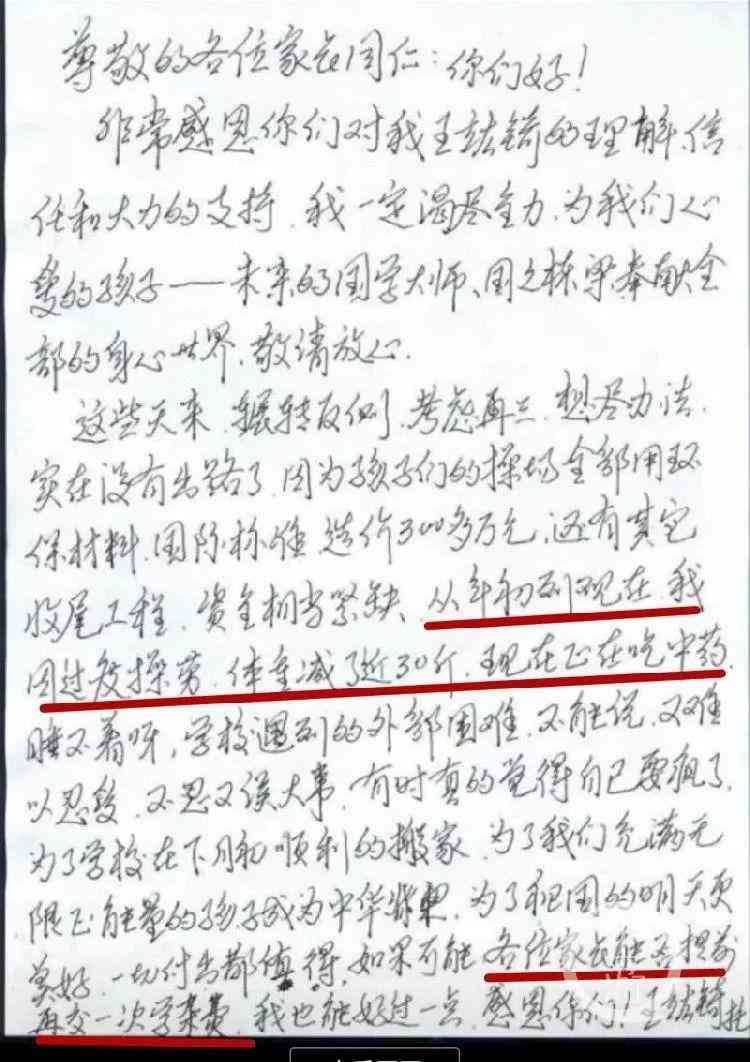 尊敬的各位家长同仁：你们好！
非常感恩你们对我王喆锜的理解、信
任和大力的支持，我一定竭尽全力，为我们心
爱的孩子——未来的国学大师、国之栋梁奉献全
部的身心世界，敬请放心。
这些天来，辗转反侧，考虑再三，想尽办法，
实在没有出路了，因为孩子们的操场全部用环
保材料，国际标准，造价300多万元，还有其它
收尾工程，资金相当紧缺、从年初到现在，我
因过度操劳，体重减了近30斤，现在正在吃中药，
睡不着呀，学校遇到的外部困难，不能说，又难
以忍受，不忍又误大事，有时真的觉得自己要疯了，
为了学校在下月初顺利的搬家，为了我们充满无
限正能量的孩子成为中华，为了祖国的明天更
美好，一切付出都值得，如果可能，各位家长能否提前
再交一次学杂费，我也能好过一点，感恩你们！王喆锜